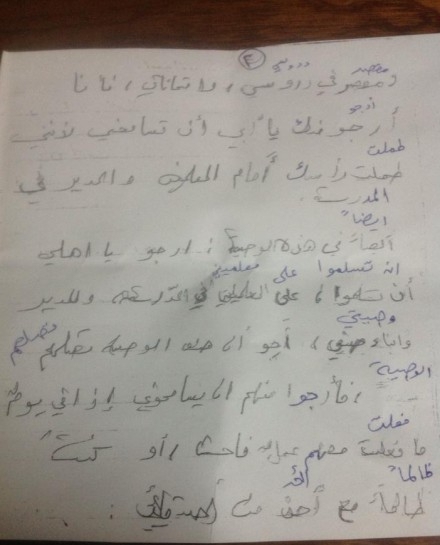 مقصر دروسي ٢
ومقصر في دروسي، وامتحاناتي، فأنا
أرجو
أرجو منك يا أبي أن تسامحني لأنني
طملت
طملت رأسك أمام المعلمين والمدير في
المدرسة.
أيضاً
أيضاً في هذه الوصية: ارجو يا اهلي
ان تسلموا على معلميني
أن تسلموا، على المدرسة، والمدير
وصيتي
أرجو الوصية تصلهم
الوصية
، فأرجوا منهم ان يسامحوني إذا في يوم
فعلت
ما فعلت معهم عمل فاحش، أو كنتُ
ظالماً أحد
ظالماً مع أحد من أصدقائي: